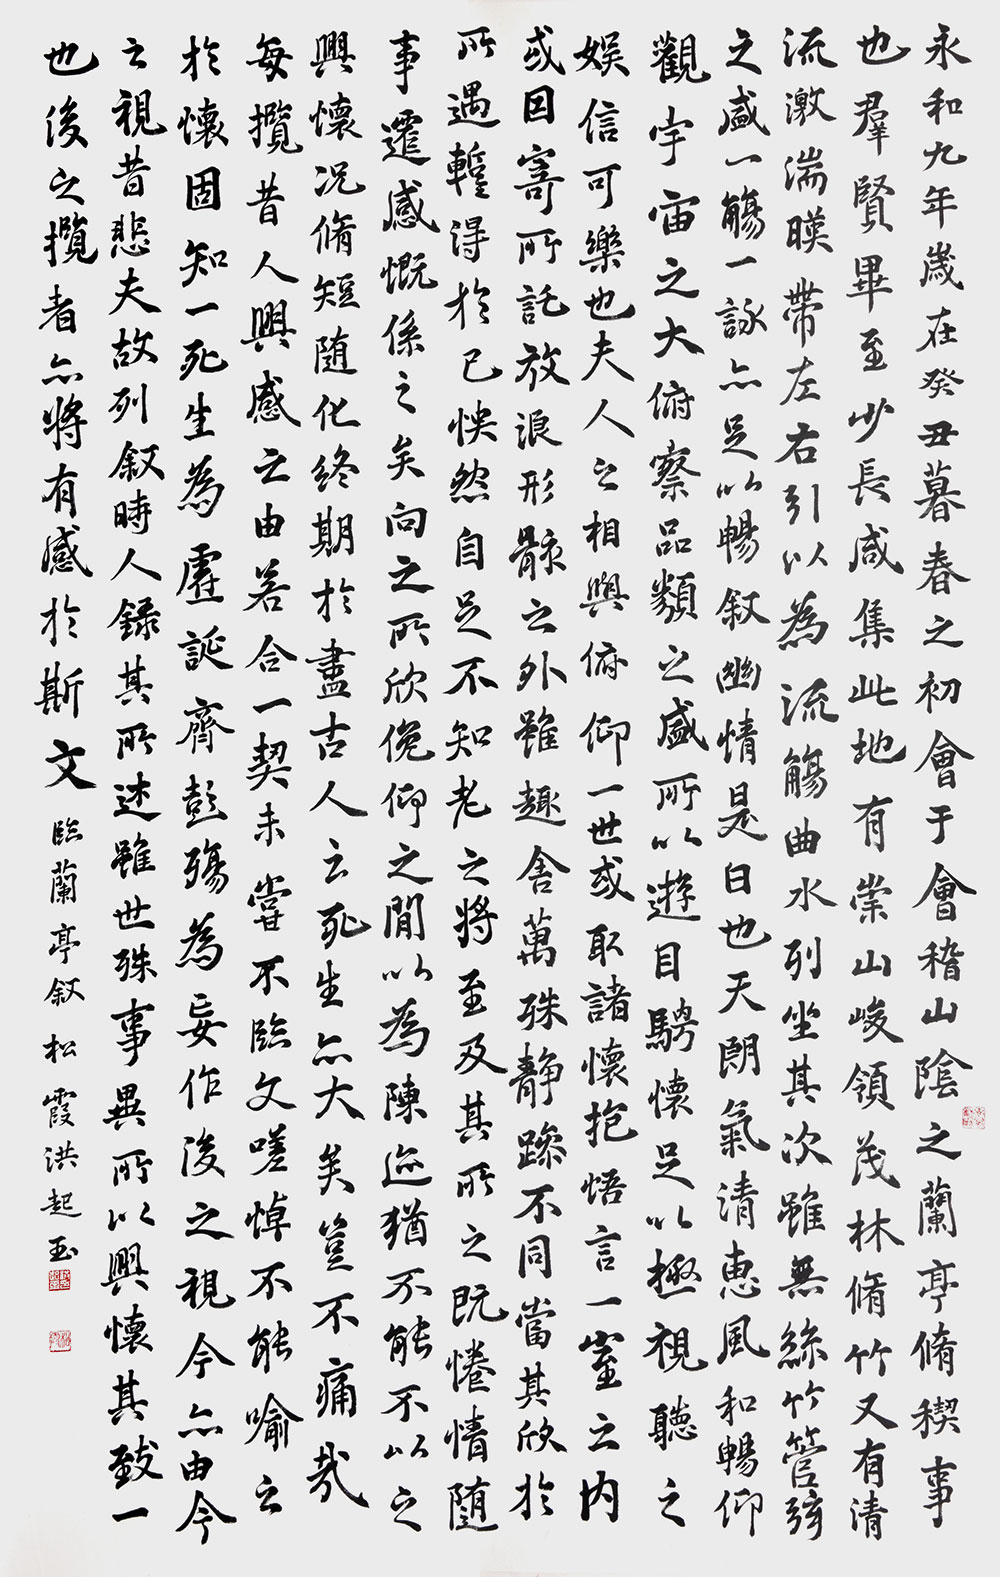 永和九年歲在癸丑暮春之初會于會稽山陰之蘭亭脩稧事
也羣賢畢至少長咸集此地有崇山峻領茂林脩竹又有清
流激湍暎帶左右引以為流觴曲水列坐其次雖無絲竹管弦
之盛一觴一詠亦足以暢敘幽情是日也天朗氣清惠風和暢仰
觀宇宙之大俯察品類之盛所以遊目騁懷足以極視聽之
娛信可樂也夫人之相與俯仰一世或取諸懷抱悟言一室之內
或因寄所託放浪形骸之外雖趣舍萬殊静躁不同當其欣於
所遇蹔得於己怏然自足不知老之將至及其所之既惓情隨
事遷感慨係之矣向之所欣俛仰之閒以為陳迹猶不能不以之
興懷况脩短隨化終期於盡古人云死生亦大矣豈不痛哉
每攬昔人興感之由若合一契未嘗不臨文嗟悼不能喻之
於懷固知一死生為虛誕齊彭殤為妄作後之視今亦由今
之視昔悲夫故列敘時人錄其所述雖世殊事異所以興懷其致一
也後之攬者亦將有感於斯文 臨蘭亭敘 松霞洪起玉